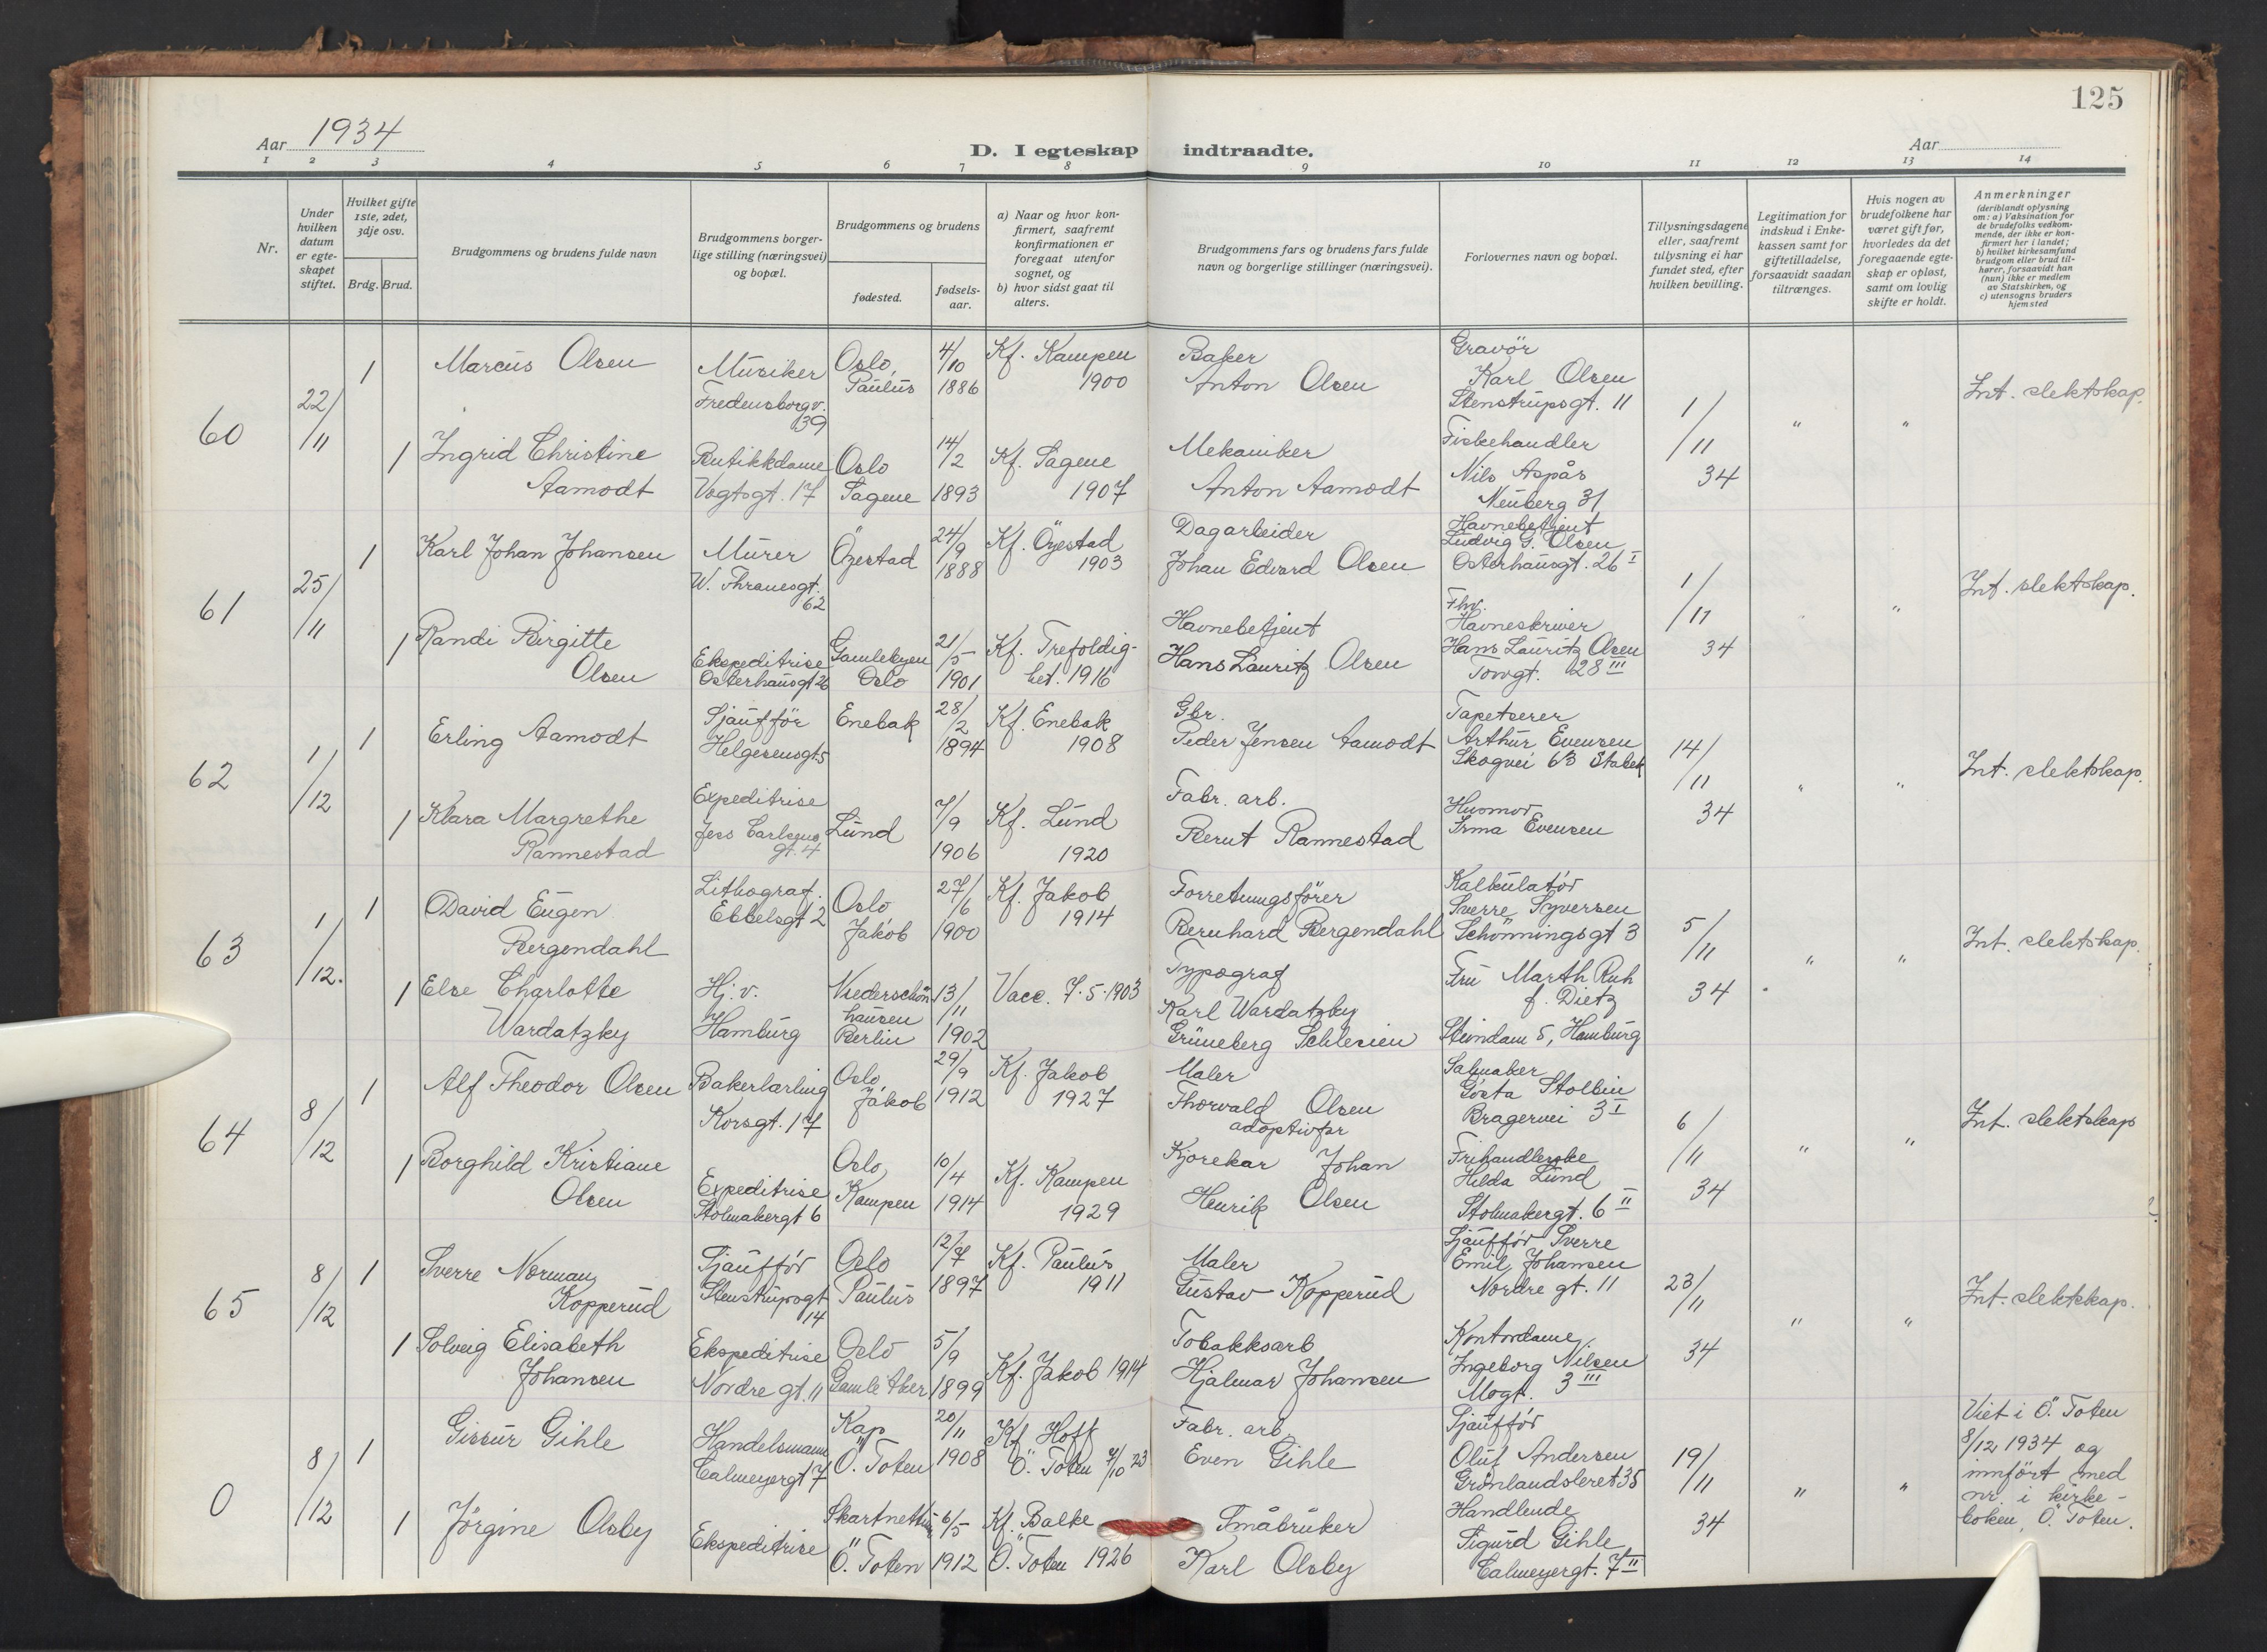 125
Aar 1934
D. I egteskap indtraadte.
Aar
1 2 3 4 5 6 7 8 9 10 11 12 13 14
Nr.
Under hvilken datum er egte-skapet stiftet.
Hvilket gifte 1ste, 2det, 3dje osv.
Brdg. Brud.
Brudgommens og brudens fulde navn
Brudgommens borger-lige stilling (næringsvei) og bopæl.
Brudgommens og brudens
fødested.
fødsels-aar.
a) Naar og hvor kon-firmert, saafremt konfirmationen er foregaat utenfor sognet, og
b) hvor sidst gaat til alters.
Brudgommens fars og brudens fars fulde navn og borgerlige stillinger (næringsvei).
Forlovernes navn og bopæl.
Tillysningsdagene eller, saafremt tillysning ei har fundet sted, efter hvilken bevilling.
Legitimation for indskud i Enke-kassen samt for giftetilladelse, forsaavidt saadan tiltrænges.
Hvis nogen av brudefolkene har været gift før, hvorledes da det foregaaende egte-skap er opløst, samt om lovlig skifte er holdt.
Anmerkninger
(deriblandt oplysning om: a) Vaksination for de brudefolks vedkom-mende, der ikke er kon-firmert her i landet; b) hvilket kirkesamfund brudgom eller brud til-hører, forsaavidt han (hun) ikke er medlem av Statskirken, og c) utensogns bruders hjemsted
60
22/11
1
Marcus Olsen
Musiker
Fredensborgv. 39
Oslo, Paulus
4/10 1886
Kf. Kampen 1900
Baker
Anton Olsen
Gravör
Karl Olsen
Stenstrupsgt. 11
1/11 34
" "
Int. slektskap.
1
Ingrid Christine
Aamodt
Butikkdame
Vogtsgt. 17
Oslo Sagene
14/2 1893
Kf. Sagene 1907
Mekaniker
Anton Aamodt
Fiskehandler
Nils Aspås
Neuberg 31
61
25/11
1
Karl Johan Johansen
Murer
W. Thranesgt. 62
Öyestad
24/9 1888
Kf. Öyestad 1903
Dagarbeider
Johan Edvard Olsen
Havnebetjent
Ludvig G. Olsen
Osterhausgt. 26 I
1/11 34
"
Int. slektskap.
1
Randi Birgitte
Olsen
Ekspeditrise
Osterhausgt 26
Gamlebyen Oslo
21/5 1901
Kf. Trefoldig-het. 1916
Havnebetjent
Hans Lauritz Olsen
Fhv.
Havneskriver
Hans Lauritz Olsen
Torvgt. 28 III
62
1/12
1
Erling Aamodt
Sjaufför
Helgesensgt 5
Enebak
28/2 1894
Kf. Enebak 1908
Gbr.
Peder Jensen Aamodt
Tapetserer
Arthur Evensen
Skogvei 63 Stabek
14/11 34
" "
Int. slektskap.
1
Klara Margrethe
Rannestad
Expeditrise
Jess Carlsens gt. 4
Lund
7/9 1906
Kf. Lund 1920
Fabr. arb.
Bernt Rannestad
Husmor
Irma Evensen
63
1/12.
1
David Eugen
Bergendahl
Lithograf.
Ebbelsgt 2
Oslo Jakob
27/6 1900
Kf. Jakob 1914
Forretningsförer
Bernhard Bergendahl
Kalkulatör
Sverre Syversen
Schönningsgt 3
5/11 34
" "
Int. slektskap.
1
Else Charlotte
Wardatzky
Hj. v.
Hamburg
Niederschön hausen Berlin
13/11 1902
Vacc. 7.5.1903
Typograf
Karl Wardatzky
Grüneberg Schlesien
Fru Marth Ruh
f. Dietz
Steindam 5, Hamburg
64
8/12
1
Alf Theodor Olsen
Bakerlærling
Korsgt. 17
Oslo Jakob
29/9 1912
Kf. Jakob 1927
Maler
Thorvald Olsen
adoptivfar
Salmaker
Gösta Stolbin
Bragervei 3 I
6/11 34
" "
Int. slektskap
1
Borghild Kristiane
Olsen
Expeditrise
Stolmakergt 6
Oslo, Kampen
10/4 1914
Kf. Kampen 1929
Kjörekar Johan
Henrik Olsen
Frihandlerske
Hilda Lund
Stolmakergt. 6 II
65
8/12
1
Sverre Norman
Kopperud
Sjaufför
Stenstrupsgt 14
Oslo Paulus
12/7 1897
Kf. Paulus 1911
Maler
Gustav Kopperud
Sjaufför Sverre
Emil Johansen
Nordre gt. 11
23/11 34
" "
Int. slektskap.
1
Solveig Elisabeth
Johansen
Ekspeditrise
Nordre gt. 11
Oslo Gamle Aker
5/9 1899
Kf. Jakob 1914
Tobakksarb
Hjalmar Johansen
Kontordame
Ingeborg Nilsen
Mogt. 3 III
0
8/12
1
Gissur Gihle
Handelsmann
Calmeyergt 7
Kap Ö. Toten
20/11 1908
Kf Hoff
Ö. Toten 7/10 23
Fabr. arb.
Even Gihle
Sjaufför
Oluf Andersen
Grönlandsleret 35
19/11 34
" "
Viet i Ö. Toten
8/12 1934 og
innfört med
nr. i kirke-
boken, Ö. Toten.
1
Jörgine Olsby
Ekspeditrise
Ö. Toten
6/5 1912
Kf. Balke
Ö. Toten 1926
Småbruker
Karl Olsby
Handlende
Sigurd Gihle
Calmeyergt. 7 II